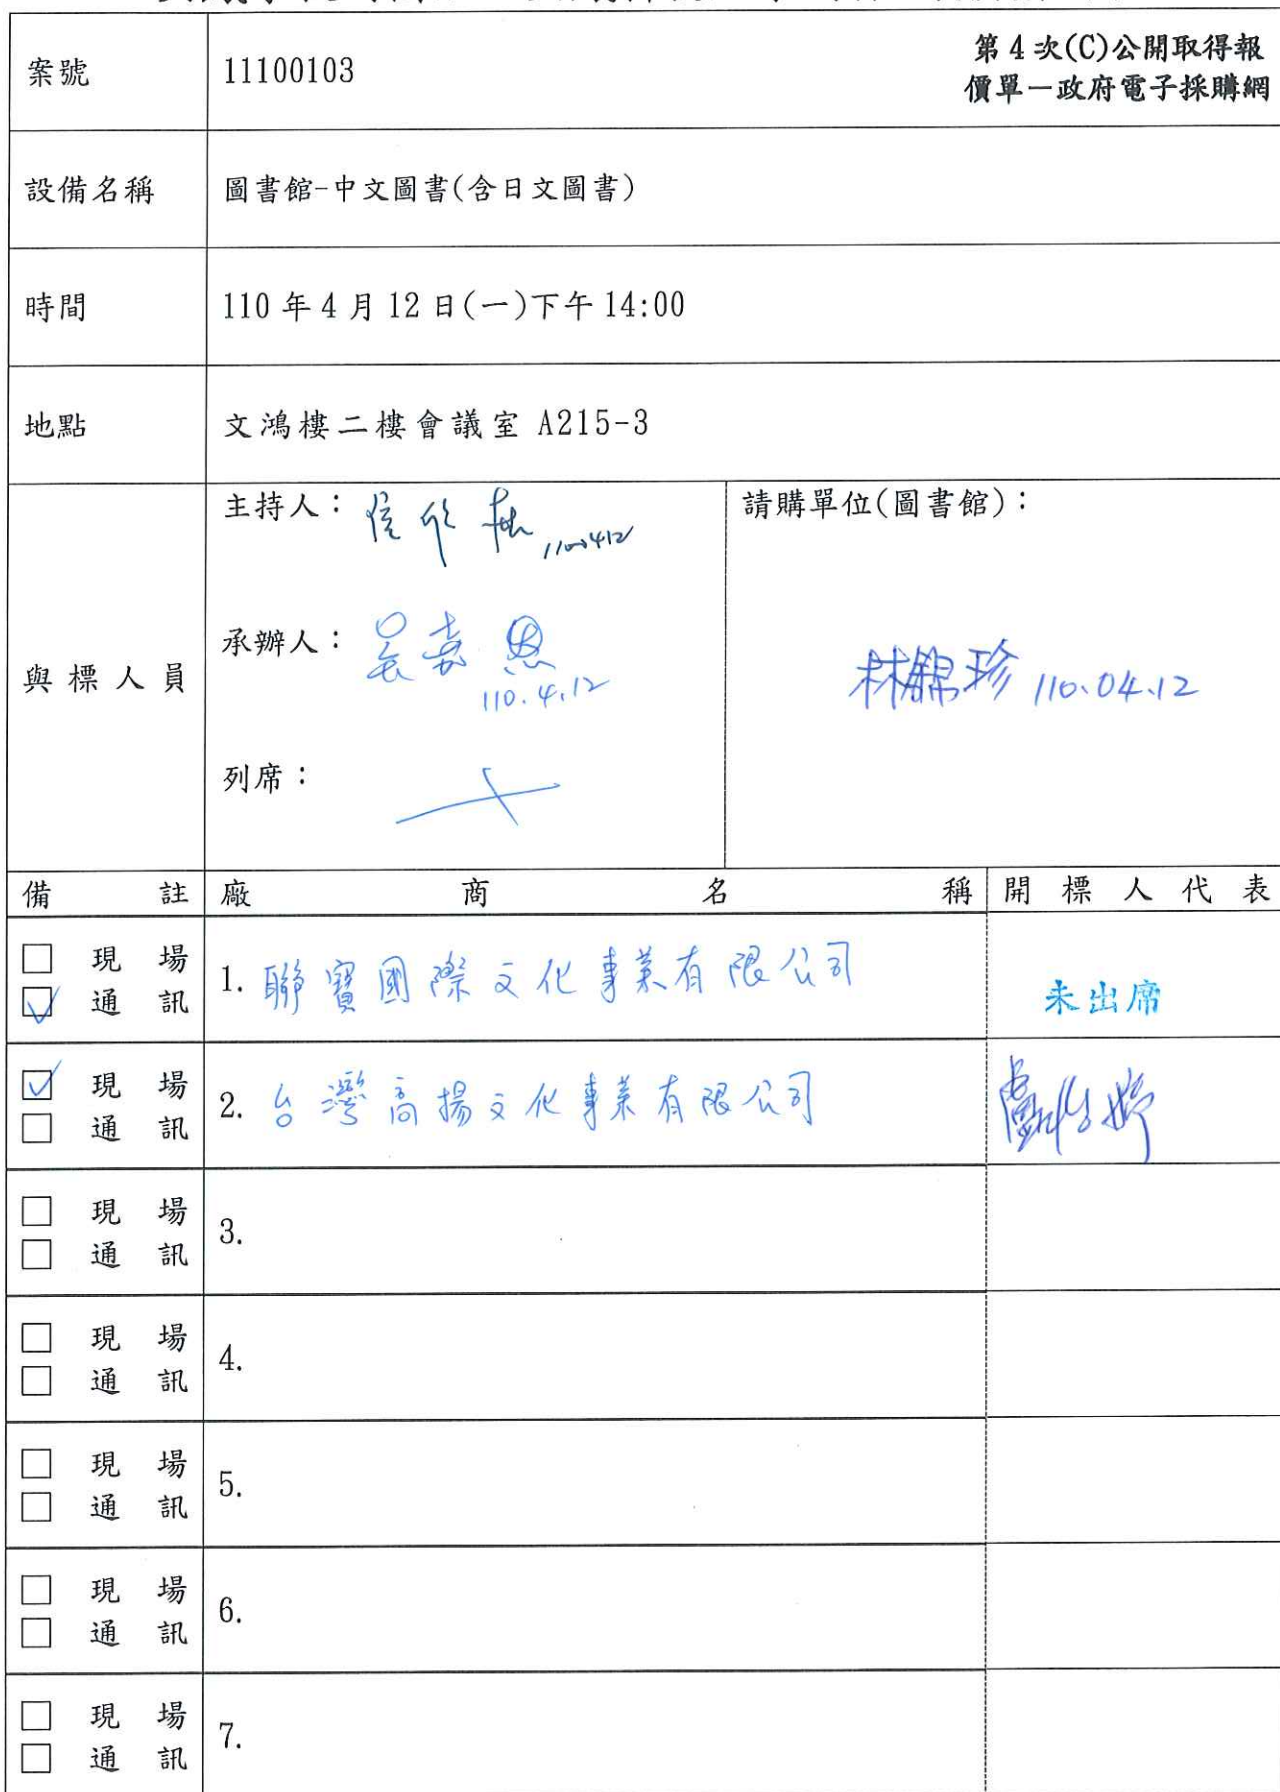 案號 11100103 第4次(C)公開取得報
價單－政府電子採購網
設備名稱 圖書館-中文圖書(含日文圖書)
時間 110年4月12日(一)下午14:00
地點 文鴻樓二樓會議室 A215-3
與標人員
主持人： 1100412
承辦人：吳嘉恩
110.4.12
列席：
請購單位(圖書館)：
林錦珍 110.04.12
備註 廠商名稱 開標人代表
□ 現場
☑ 通訊
1. 聯寶國際文化事業有限公司
未出席
☑ 現場
□ 通訊
2. 台灣高揚文化事業有限公司
□ 現場
□ 通訊
3.
□ 現場
□ 通訊
4.
□ 現場
□ 通訊
5.
□ 現場
□ 通訊
6.
□ 現場
□ 通訊
7.